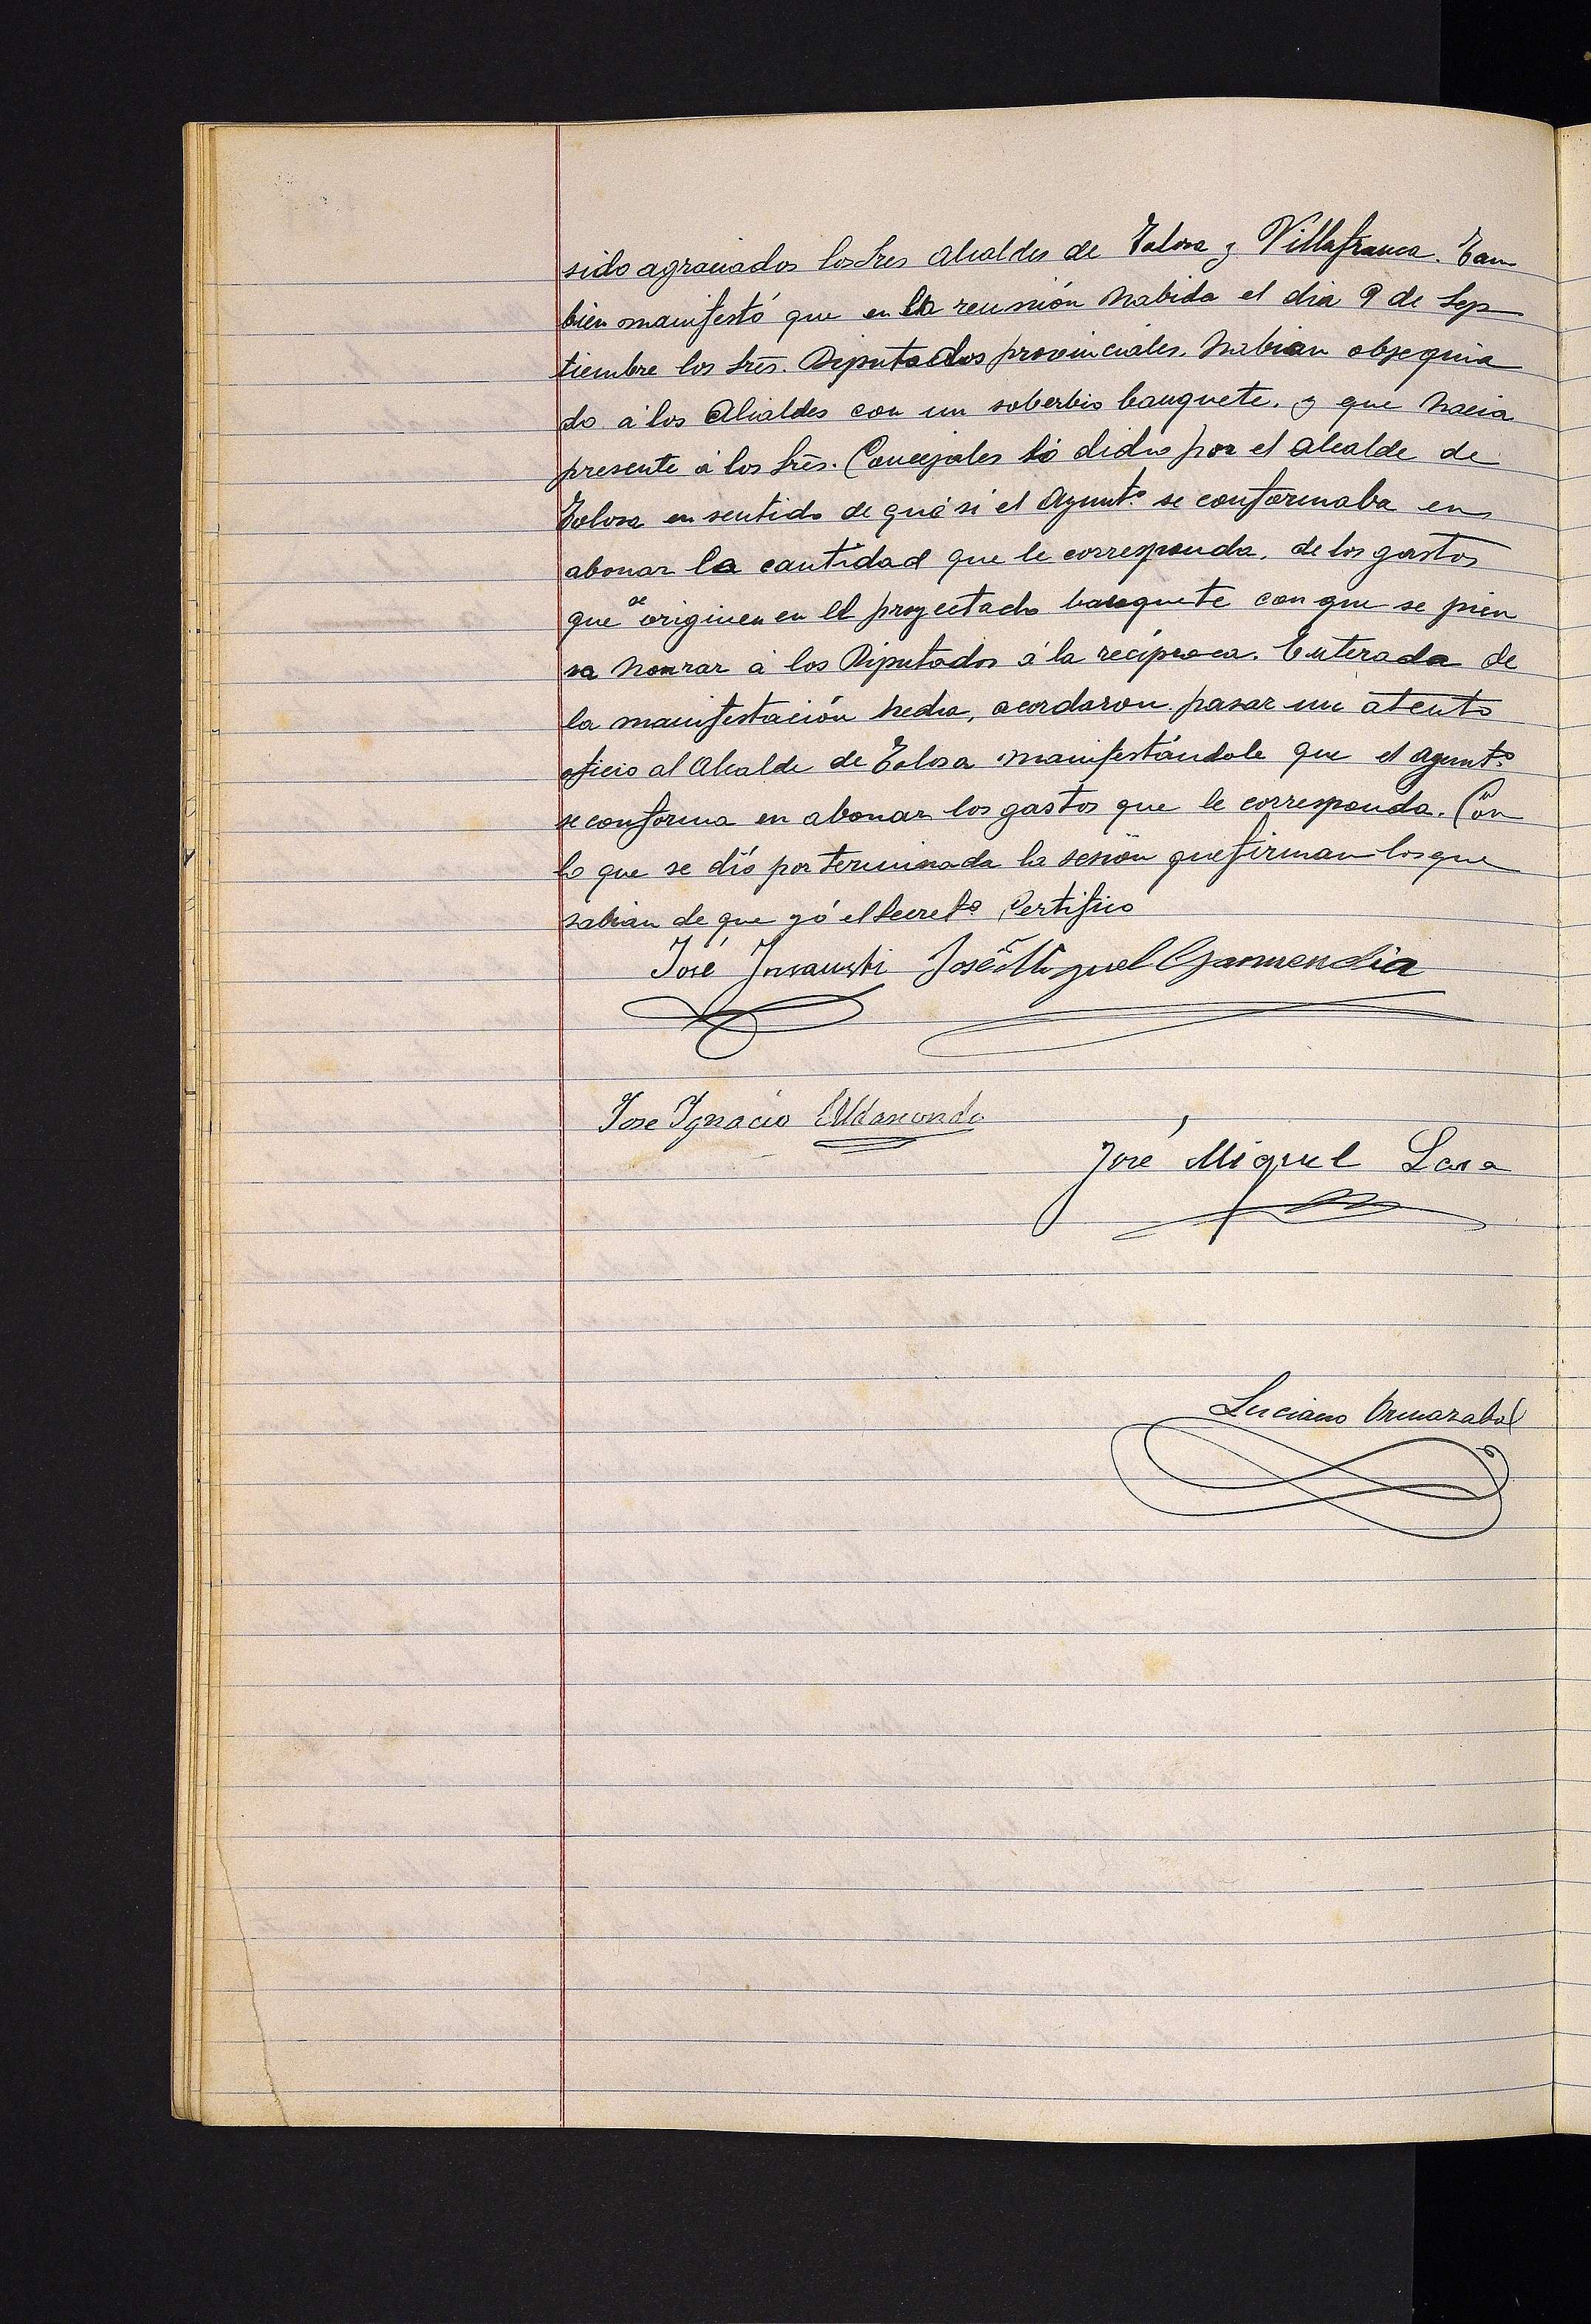 sido agraciados los Sres Alcaldes de Tolosa y Villafranca. Tam
bien manifestó que en la reunión habida el dia 9 de Sep
tiembre los Srēs. Diputados provinciales. habian obsequia
do á los Alcaldes con un soberbio banquete. y que hacia
presente á los Srēs. Concejales lo dicho por el Alcalde de
Tolosa en sentido de qué si el Ayunt.º se conformaba en
abonar la cantidad que le corresponda. de los gastos
que se originen en el proyectado banquete con que se pien
sa honrar á los Diputados á la recíproca. Enterada de
la manifestación hecha, acordaron pasar un atento
oficio al Alcalde de Tolosa manifestándole que el Ayunt.º
se conforma en abonar los gastos que le corresponda. Con
lo que se dió por terminada la sesión que firman los que
sabian de que yó el Secretº Certifico
José Insausti José Miguel Garmendia
Jose Ignacio Aldasoro
José Miguel Lasa
Luciano Ormazabal